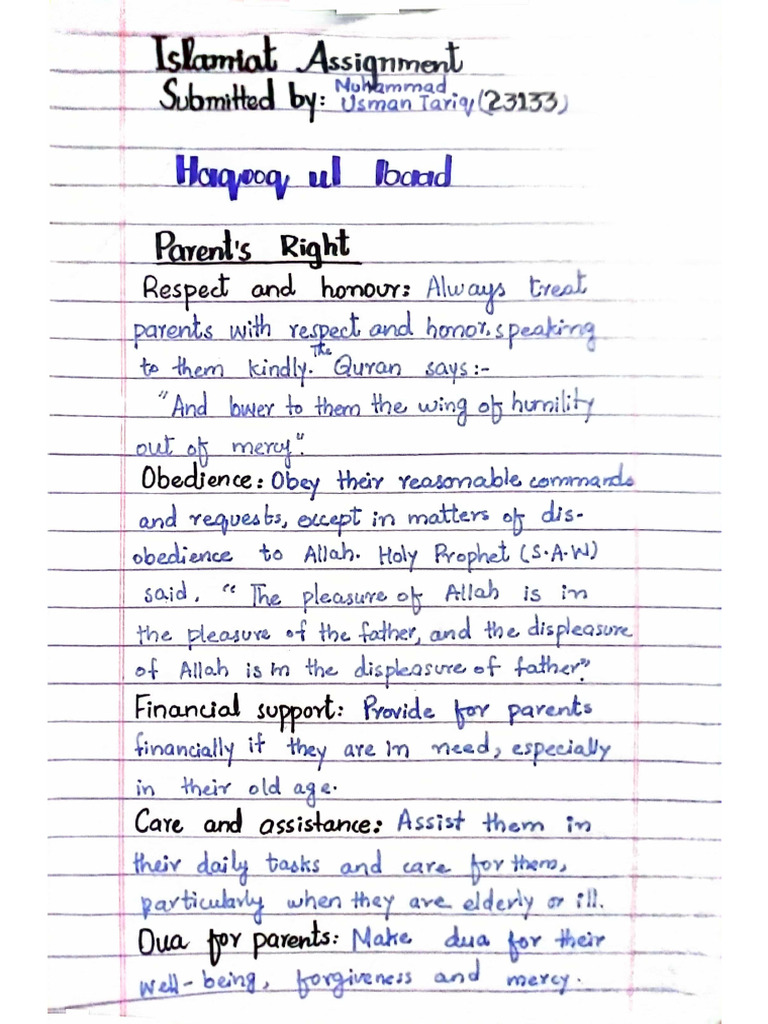 Islamiat Assignment
Submitted by: Muhammad
Usman Tariq (23133)
Haqooq ul Ibaad
Parent's Right
Respect and honour: Always treat
parents with respect and honor, speaking
to them kindly. The Quran says:-
"And lower to them the wing of humility
out of mercy".
Obedience: Obey their reasonable commands
and requests, except in matters of dis-
obedience to Allah. Holy Prophet (S.A.W)
said, "The pleasure of Allah is in
the pleasure of the father, and the displeasure
of Allah is in the displeasure of father".
Financial support: Provide for parents
financially if they are in need, especially
in their old age.
Care and assistance: Assist them in
their daily tasks and care for them,
particularly when they are elderly or ill.
Dua for parents: Make dua for their
well-being, forgiveness and mercy.